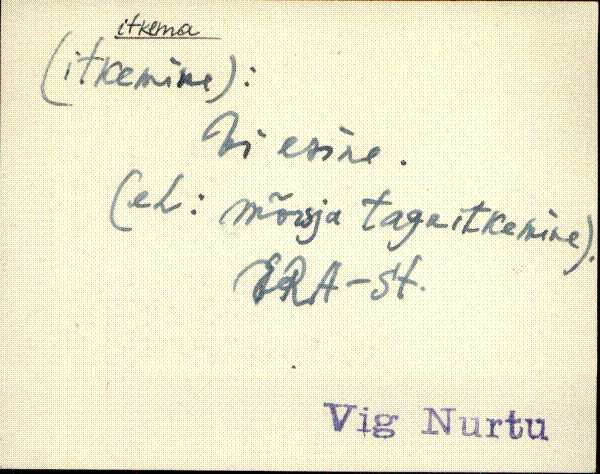 itkema
(itkemine):
Ei esine.
(eL: mõrsja tagaitkemine).
ERA-st.
Vig Nurtu